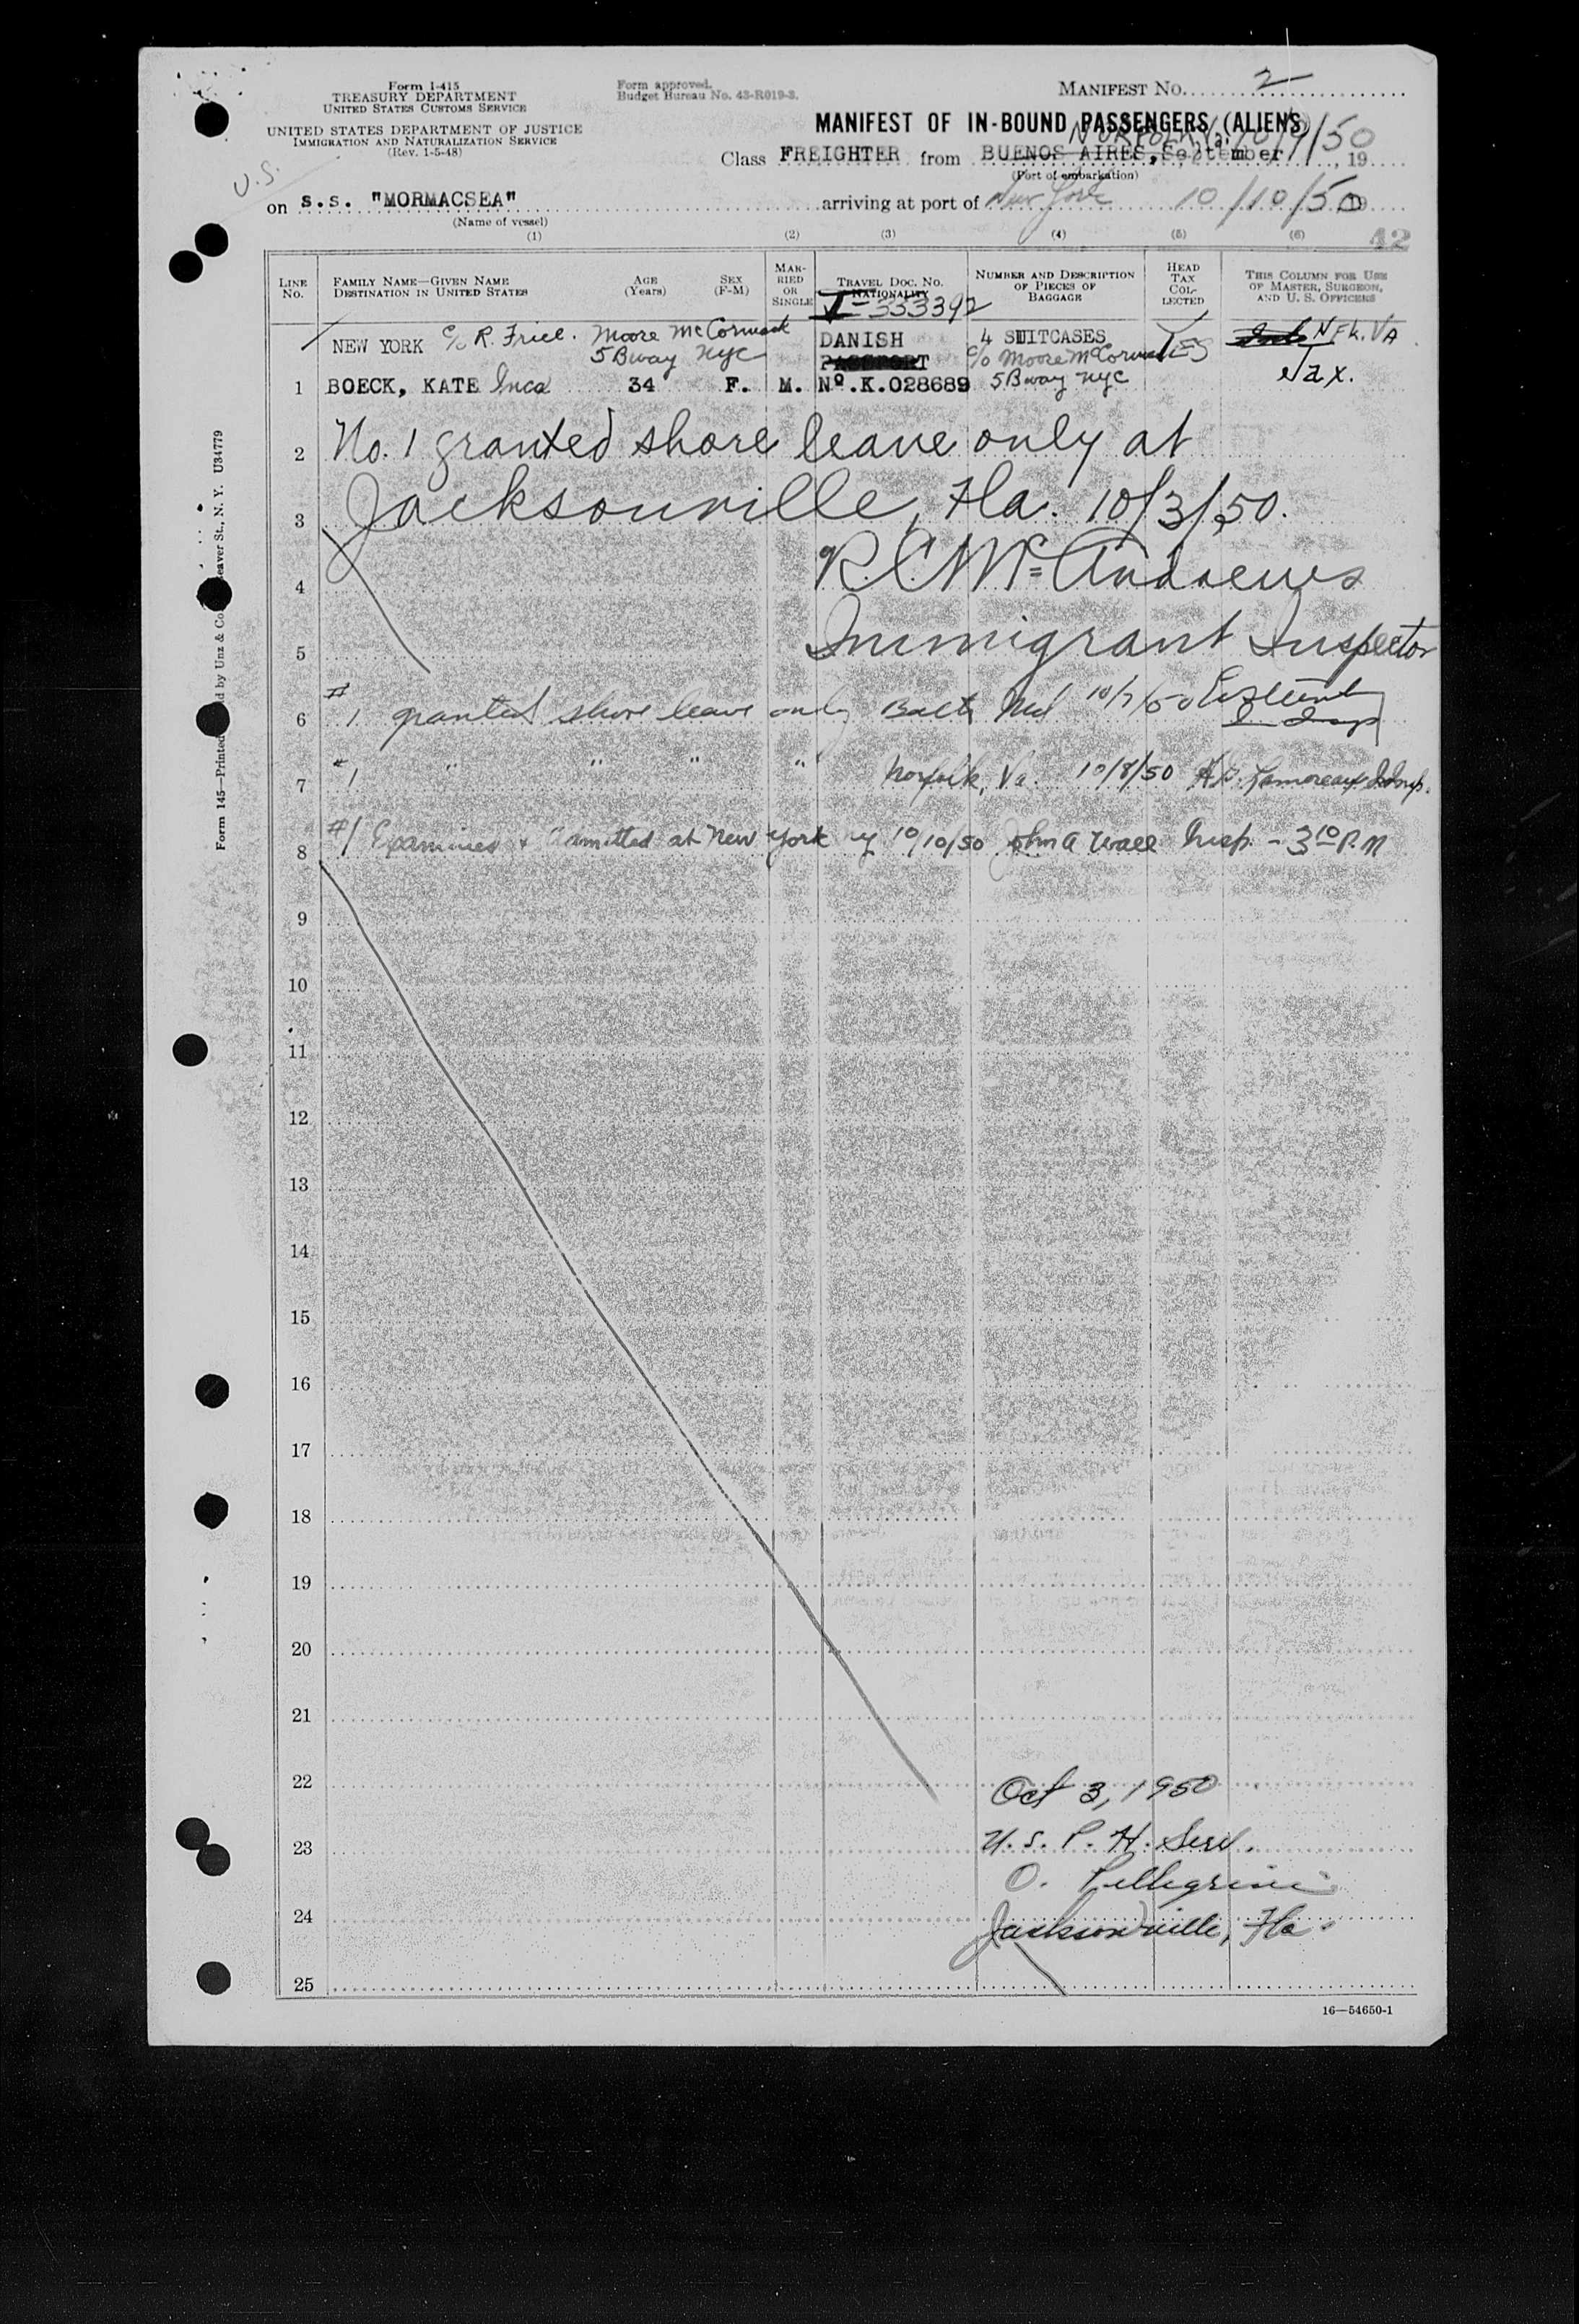 Form I-415
TREASURY DEPARTMENT
UNITED STATES CUSTOMS SERVICE
UNITED STATES DEPARTMENT OF JUSTICE
IMMIGRATION AND NATURALIZATION SERVICE
(Rev. 1-5-48)
Form approved.
Budget Bureau No. 43-R019-3.
MANIFEST No. 2
MANIFEST OF IN-BOUND PASSENGERS (ALIENS)
NORFOLK, Va. 10/9/50
Class FREIGHTER from BUENOS AIRES, September, 19
(Port of embarkation)
U.S.
on S.S. "MORMACSEA" arriving at port of New York 10/10/50 19
(Name of vessel)
(1) (2) (3) (4) (5) (6) 42
LINE No. FAMILY NAME—GIVEN NAME DESTINATION IN UNITED STATES AGE (Years) SEX (F-M) MARRIED OR SINGLE TRAVEL DOC. NO. NATIONALITY NUMBER AND DESCRIPTION OF PIECES OF BAGGAGE HEAD TAX COLLECTED THIS COLUMN FOR USE OF MASTER, SURGEON, AND U. S. OFFICERS
333392
NEW YORK c/o R. Friel. Moore McCormack DANISH 4 SUITCASES YES NFk. VA
5 Bway NYC PASSPORT c/o Moore McCormack
1 BOECK, KATE Inca 34 F. M. Nº.K.028689 5 Bway NYC Jax.
2 No. 1 granted shore leave only at
3 Jacksonville, Fla. 10/3/50.
4 R.C. McAndrews
5 Immigrant Inspector
6 #1 granted shore leave only Balto Md 10/7/50
7 #1 " " " " Norfolk, Va. 10/8/50 Lamoreaux I. Insp.
8 #1 Examined & admitted at New York Ny 10/10/50 John A Wall Insp. - 3 10 P.M
9
10
11
12
13
14
15
16
17
18
19
20
21
22 Oct 3, 1950
23 U.S. P. H. Serv.
O. Pellegrini
24 Jacksonville, Fla.
25
16—54650-1
Form 145—Printed and by Unz & Co eaver St., N. Y. U34779